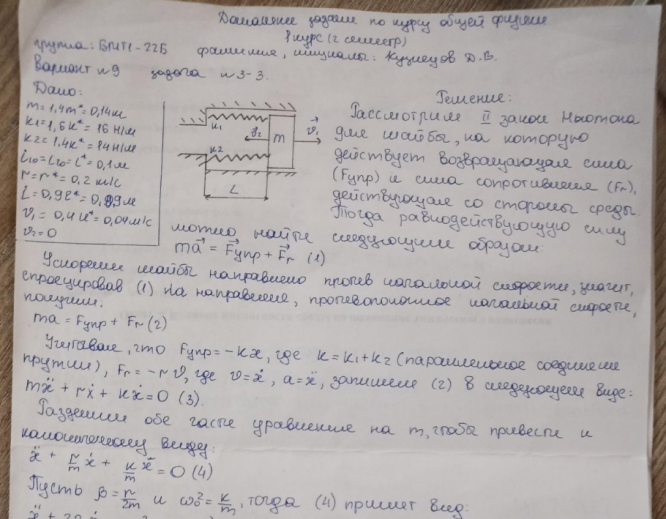 Домашнее задание по курсу общей физики
1 курс (2 семестр)
группа: БМТ1-22Б фамилия, инициалы: Кузнецов Д.В.
Вариант №9 задача №3-3.
Дано:
m = 1,4m* = 0,14кг
k1 = 1,6k* = 16 Н/м
k2 = 1,4k* = 14 Н/м
l10 = l20 = l* = 0,1м
r = r* = 0,2 кг/с
L = 0,9l* = 0,09м
v1 = 0,4u* = 0,04м/с
v2 = 0
k1
k2
v2
m
v1
L
Решение:
Рассмотрим II закон Ньютона
для шайбы, на которую
действует возвращающая сила
(Fупр) и сила сопротивления (Fr),
действующая со стороны среды.
Тогда равнодействующую силу
можно найти следующим образом:
ma = Fупр + Fr (1)
Ускорение шайбы направлено против начальной скорости, значит,
спроецировав (1) на направление, противоположное начальной скорости,
получим:
ma = Fупр + Fr (2)
Учитывая, что Fупр = -kx, где k = k1 + k2 (параллельное соединение
пружин), Fr = -rv, где v = ẋ, a = ẍ, запишем (2) в следующем виде:
mẍ + rẋ + kx = 0 (3).
Разделим обе части уравнения на m, чтобы привести к
каноническому виду:
ẍ + r/m ẋ + k/m x = 0 (4)
Пусть β = r/2m и ω0² = k/m, тогда (4) примет вид: